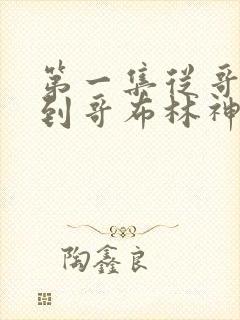 第一集从哥
到哥布林神
陶鑫良